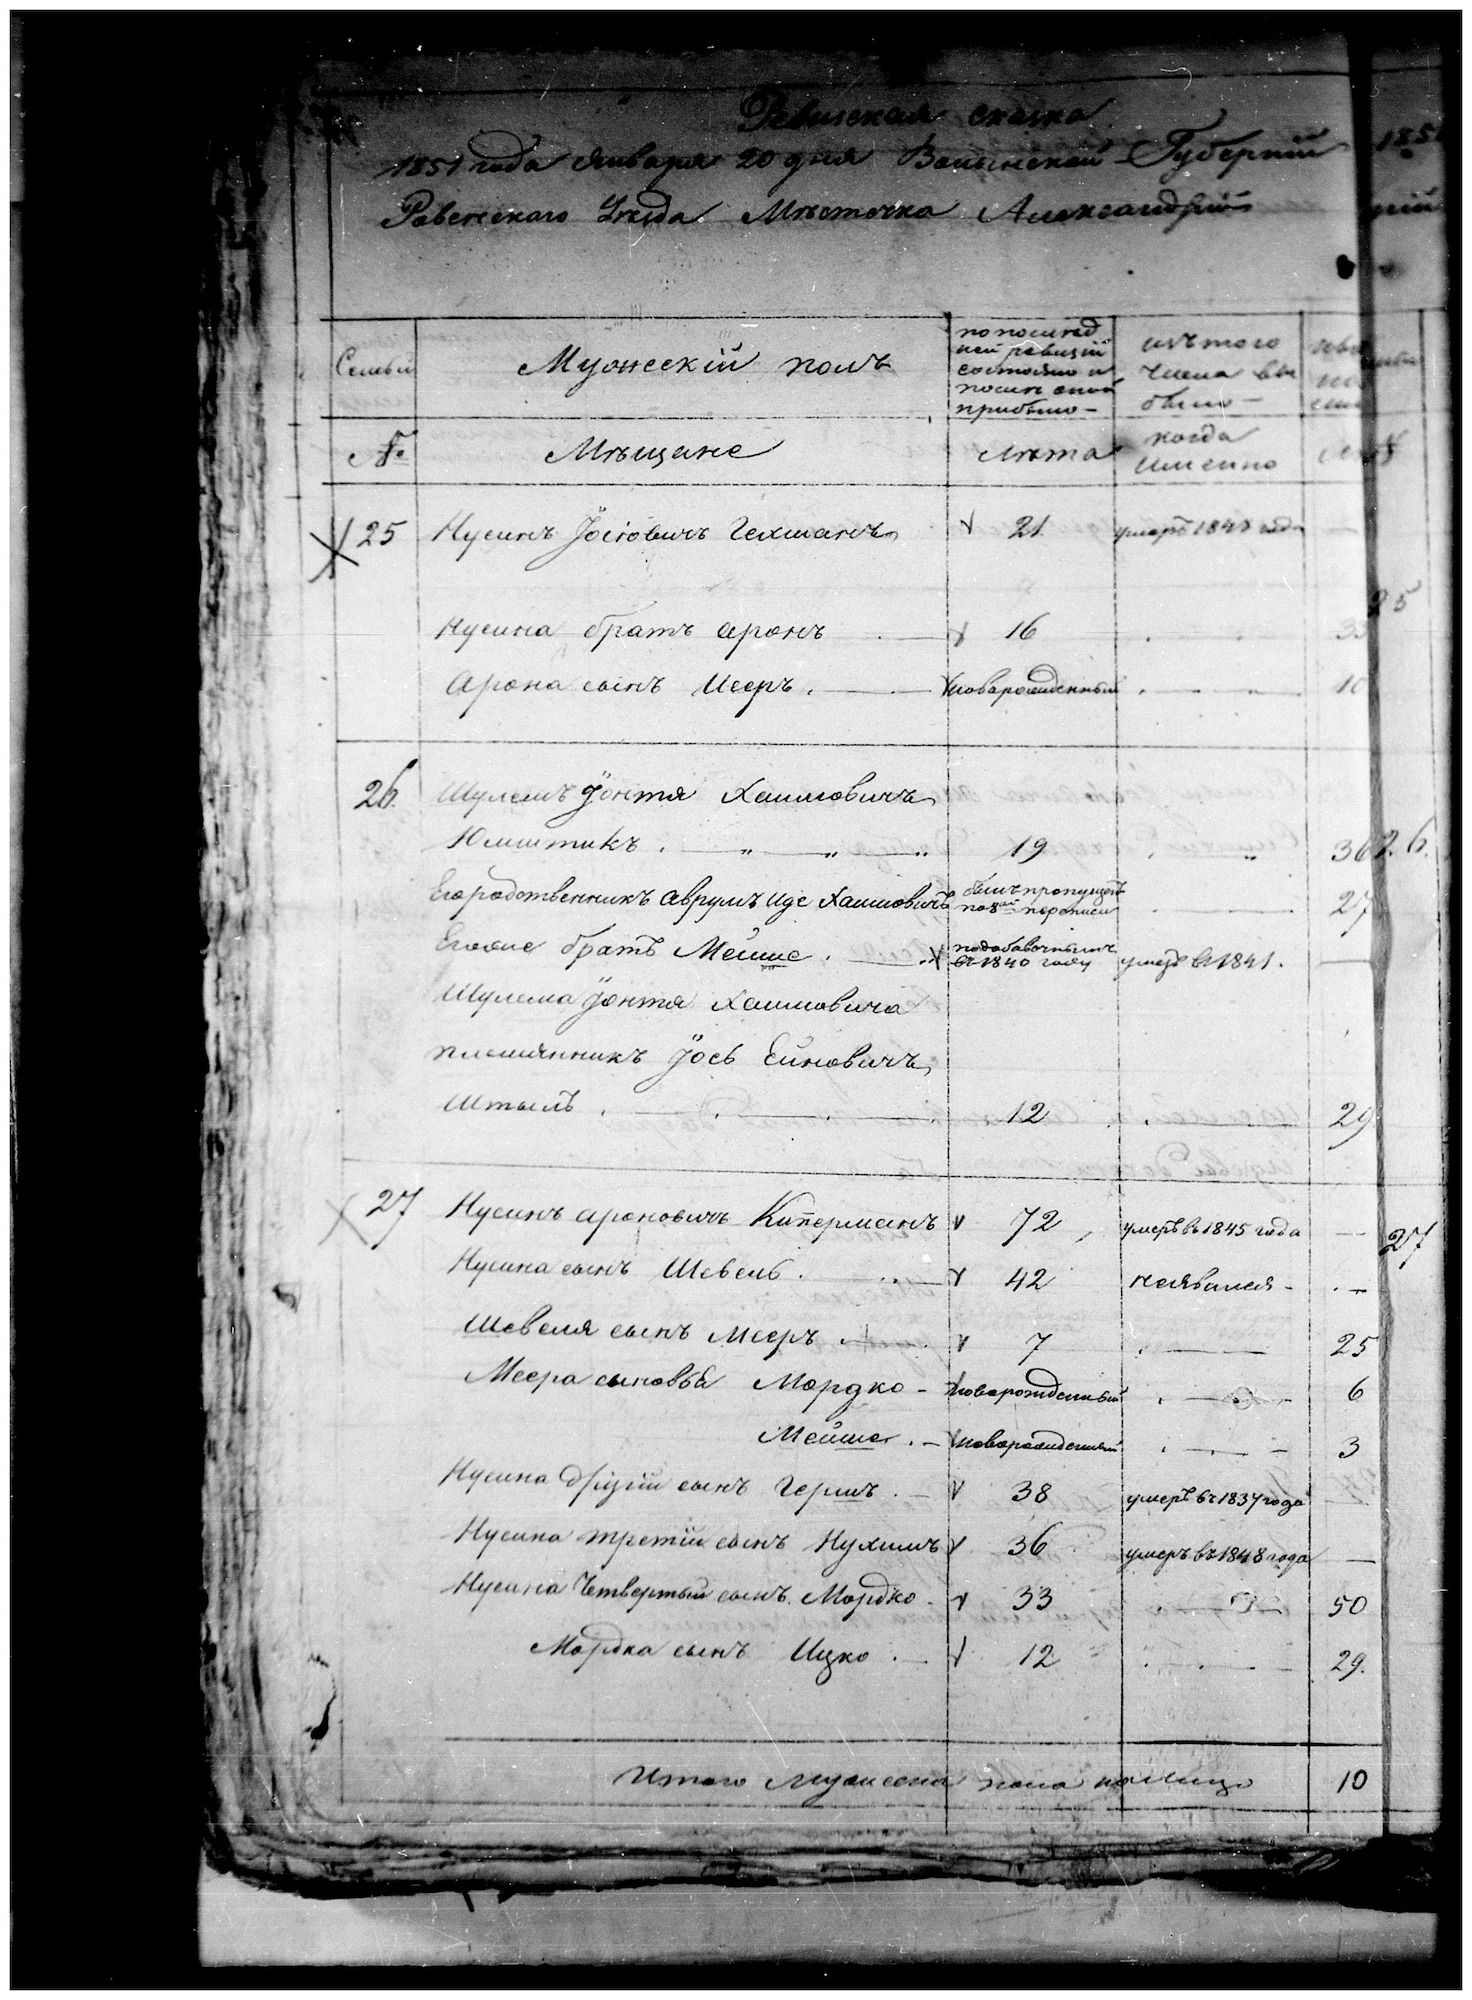 Ревизская сказка
1851 года Января 20 дня Волынской Губернии
Ровенского Уезда Мѣстечка Александріи
1851
Семьи
Мужескій полъ
по послѣд
ней ревизіи
состояло и
послѣ оной
прибыло
изъ того
числа вы
было
№
Мѣщане
Лѣта
когда
именно
25 Нусинъ Іосіовичъ Гехманъ 21. умеръ 1840 года —
25
Нусина братъ Аронъ 16
Арона сынъ Мееръ новорожденный 10
26. Шулемъ Іонтя Хаимовичъ
Юмштикъ 19 36
26.
Его родственникъ Аврумъ Иде Хаимовичъ былъ пропущенъ по 8ой переписи 27
Егоже братъ Мейше по добавочнымъ въ 1840 году умеръ въ 1841. —
Шулема Іонтя Хаимовича
племянникъ Іось Ейновичъ
Штыль 12 29
27 Нусинъ Ароновичъ Киперманъ 72 умеръ въ 1845 года —
27
Нусина сынъ Шевель 42 неявился —
Шевеля сынъ Мееръ 7 25
Меера сыновья Мордко новорожденный 6
Мейше новорожденный 3
Нусина другій сынъ Гершъ 38 умеръ въ 1837 года —
Нусина третій сынъ Нухимъ 36 умеръ въ 1848 года —
Нусина Четвертый сынъ Мордко 33 50
Мордка сынъ Ицко 12 29.
Итого мужеска пола на лицо 10